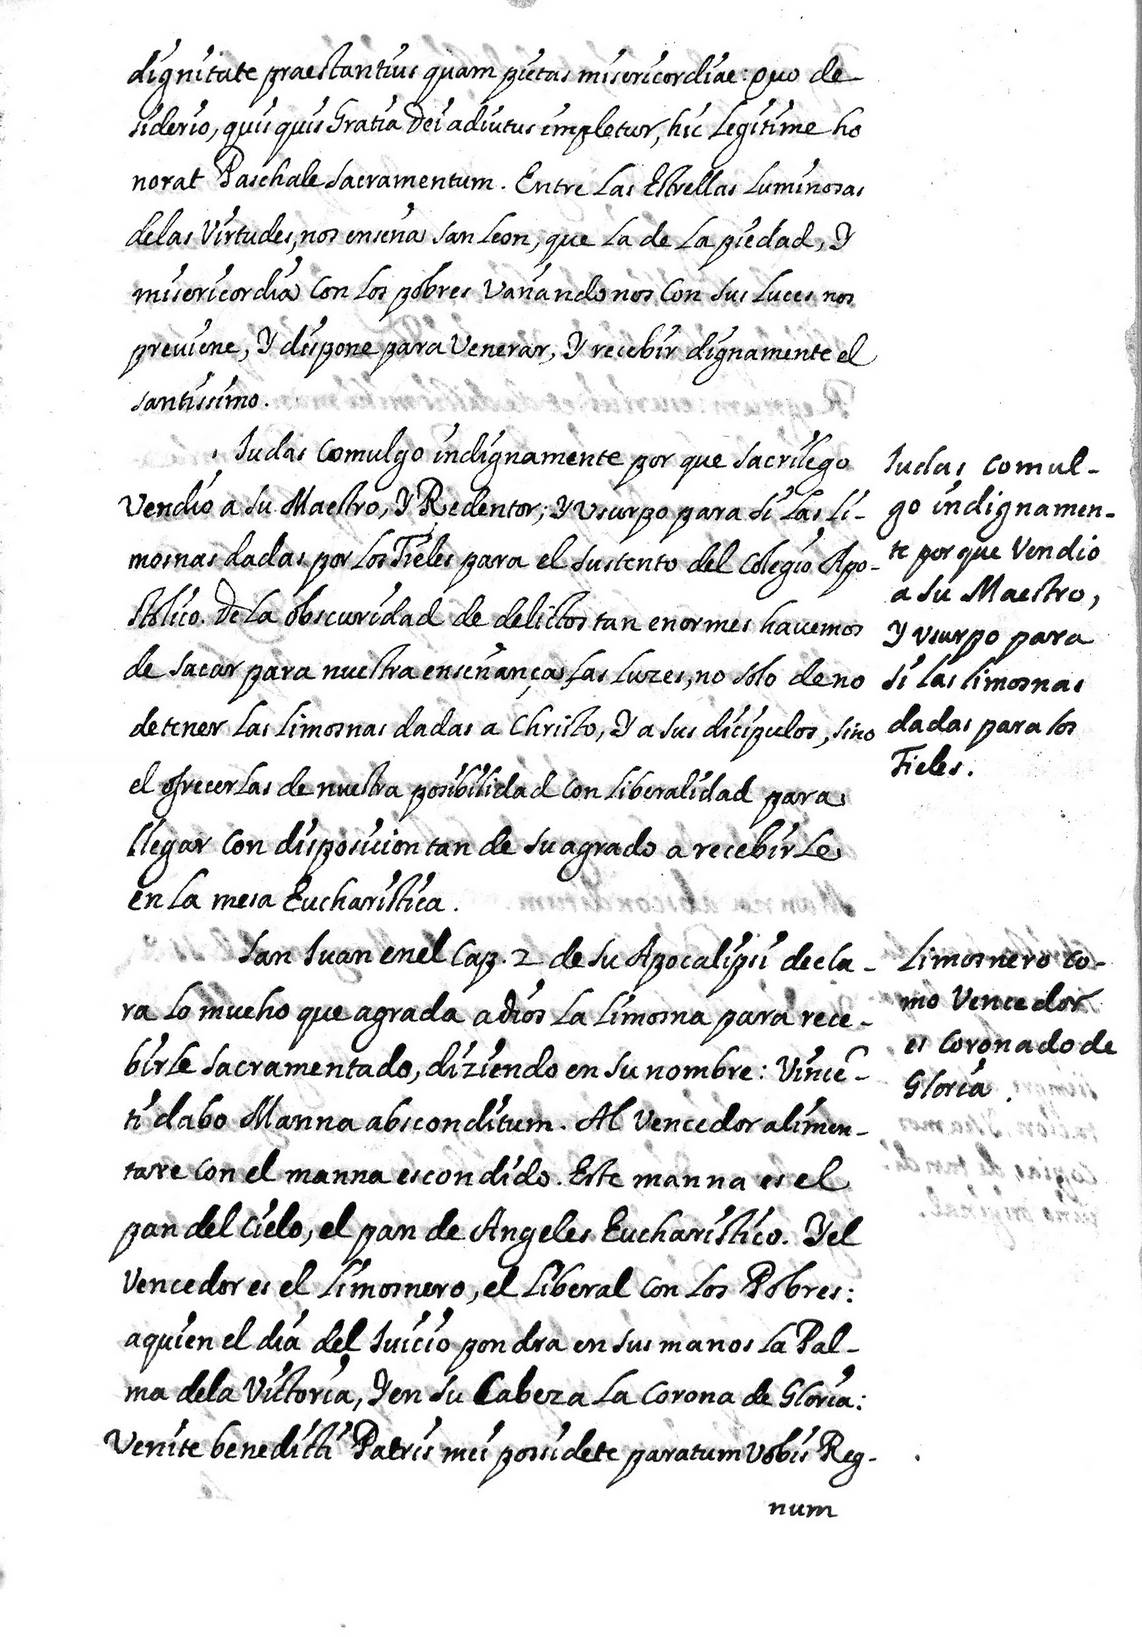 dignitate praestantius quam pietas misericordiae: quo de
siderio, quis quis Gratia Dei adiutus impletur, hic Legitime ho
norat Paschale Sacramentum. Entre Las Estrellas Luminosas
delas Virtudes, nos enseña San Leon, que La de La piedad, Y
misericordia Con Los pobres Vañandonos Con sus Luces nos
previene, Y dispone para Venerar, Y recebir dignamente el
santissimo.
Iudas Comulgo indignamente por que sacrilego
Vendio a su Maestro, Y Redentor; Y Vsurpo para si Las Li-
mosnas dadas por Los Fieles para el sustento del Colegio Apo-
stolico. De La obscuridad de delictos tan enormes hauemos
de sacar para nuestra enseñança Las Luzes, no solo de no
detener Las Limosnas dadas a Christo, Y a sus dicipulos, sino
el ofrecerLas de nuestra posibilidad Con Liberalidad para
llegar Con disposicion tan de su agrado a recebirLe
en La mesa Eucharistica.
San Iuan enel Cap. 2 de su Apocalipsi decla-
ra Lo mucho que agrada a dios La Limosna para rece-
birLe Sacramentado, diziendo en su nombre: Vincē-
ti dabo Manna absconditum. Al Vencedor alimen-
tare con el manna escondido. Este manna es el
pan del Cielo, el pan de Angeles Eucharistico. Y el
Vencedor es el Limosnero, el Liberal Con Los Pobres:
aquien el dia del Iuicio pondra en sus manos La Pal-
ma dela Victoria, Y en su Cabeza La Corona de Gloria:
Venite benedicti Patris mei possidete paratum Vobis Reg-
num
Iudas comul-
go indignamen-
te por que Vendio
a su Maestro,
Y Vsurpo para
si Las Limosnas
dadas para los
Fieles.
Limosnero co-
mo Vencedor
es Coronado de
Gloria.